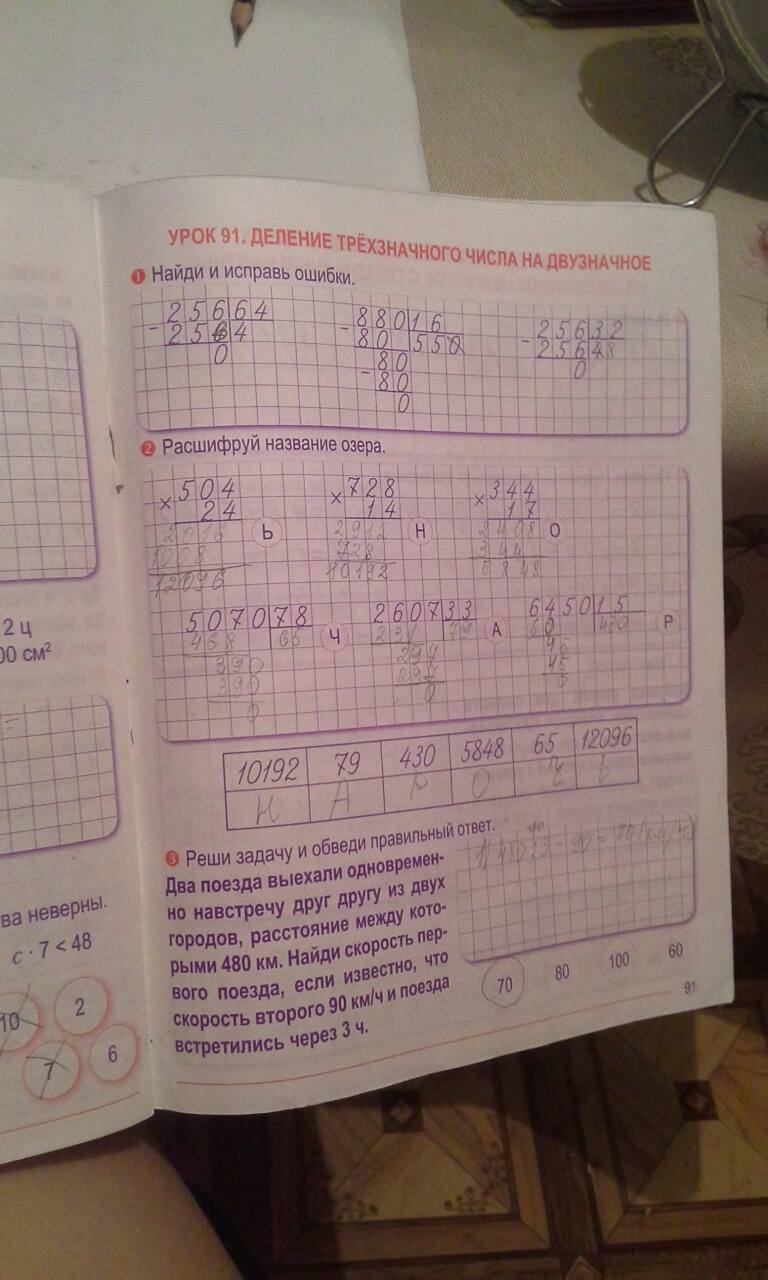 УРОК 91. ДЕЛЕНИЕ ТРЁХЗНАЧНОГО ЧИСЛА НА ДВУЗНАЧНОЕ
1 Найди и исправь ошибки.
25664 88016 25632
- 2564 - 80 550 - 25648
0 80 0
- 80
0
2 Расшифруй название озера.
504 728 344
× 24 × 14 × 17
2016 Ь 2912 Н 2408 О
1008 728 344
12096 10192 5848
507078 260733 645015
468 65 Ч 231 79 А 60 430 Р
390 297 45
390 297 45
0 0 0
10192 79 430 5848 65 12096
Н А Р О Ч Ь
3 Реши задачу и обведи правильный ответ.
Два поезда выехали одновремен-
но навстречу друг другу из двух
городов, расстояние между кото-
рыми 480 км. Найди скорость пер-
вого поезда, если известно, что
скорость второго 90 км/ч и поезда
встретились через 3 ч.
1) 480:3-90=70
70 80 100 60
91
2 ц
00 см²
ва неверны.
c · 7 < 48
10 2
7 6